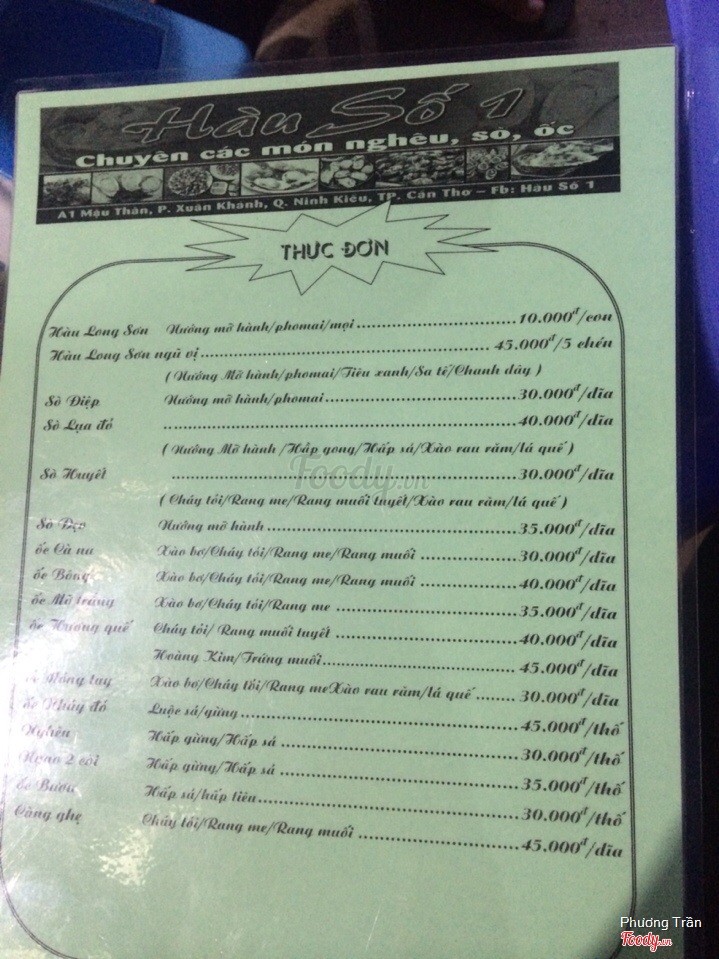 Hàu Số 1
Chuyên các món nghêu, sò, ốc
A1 Mậu Thân, P. Xuân Khánh, Q. Ninh Kiều, TP. Cần Thơ – Fb: Hàu Số 1
THỰC ĐƠN
Hàu Long Sơn Nướng mỡ hành/phomai/mọi 10.000đ/con
Hàu Long Sơn ngũ vị 45.000đ/5 chén
( Nướng Mỡ hành/phomai/Tiêu xanh/Sa tế/Chanh dây )
Sò Điệp Nướng mỡ hành/phomai 30.000đ/dĩa
Sò Lụa đỏ 40.000đ/dĩa
( Nướng Mỡ hành /Hấp gong/Hấp sả/Xào rau răm/lá quế )
Sò Huyết 30.000đ/dĩa
( Cháy tỏi/Rang me/Rang muối tuyết/Xào rau răm/lá quế )
Sò Dẹo Nướng mỡ hành 35.000đ/dĩa
ốc Cà na Xào bơ/Cháy tỏi/Rang me/Rang muối 30.000đ/dĩa
ốc Bông Xào bơ/Cháy tỏi/Rang me/Rang muối 40.000đ/dĩa
ốc Mỡ trắng Xào bơ/Cháy tỏi/Rang me 35.000đ/dĩa
ốc Hương quế Cháy tỏi/ Rang muối tuyết 40.000đ/dĩa
Hoàng Kim/Trứng muối 45.000đ/dĩa
ốc Móng tay Xào bơ/Cháy tỏi/Rang meXào rau răm/lá quế 30.000đ/dĩa
ốc Nháy đỏ Luộc sả/gừng 45.000đ/thố
Nghêu Hấp gừng/Hấp sả 30.000đ/thố
Ngao 2 còi Hấp gừng/Hấp sả 35.000đ/thố
ốc Bươu Hấp sả/hấp tiêu 30.000đ/thố
Càng ghẹ Cháy tỏi/Rang me/Rang muối 45.000đ/dĩa
Foody.vn
Phương Trần
Foody.vn